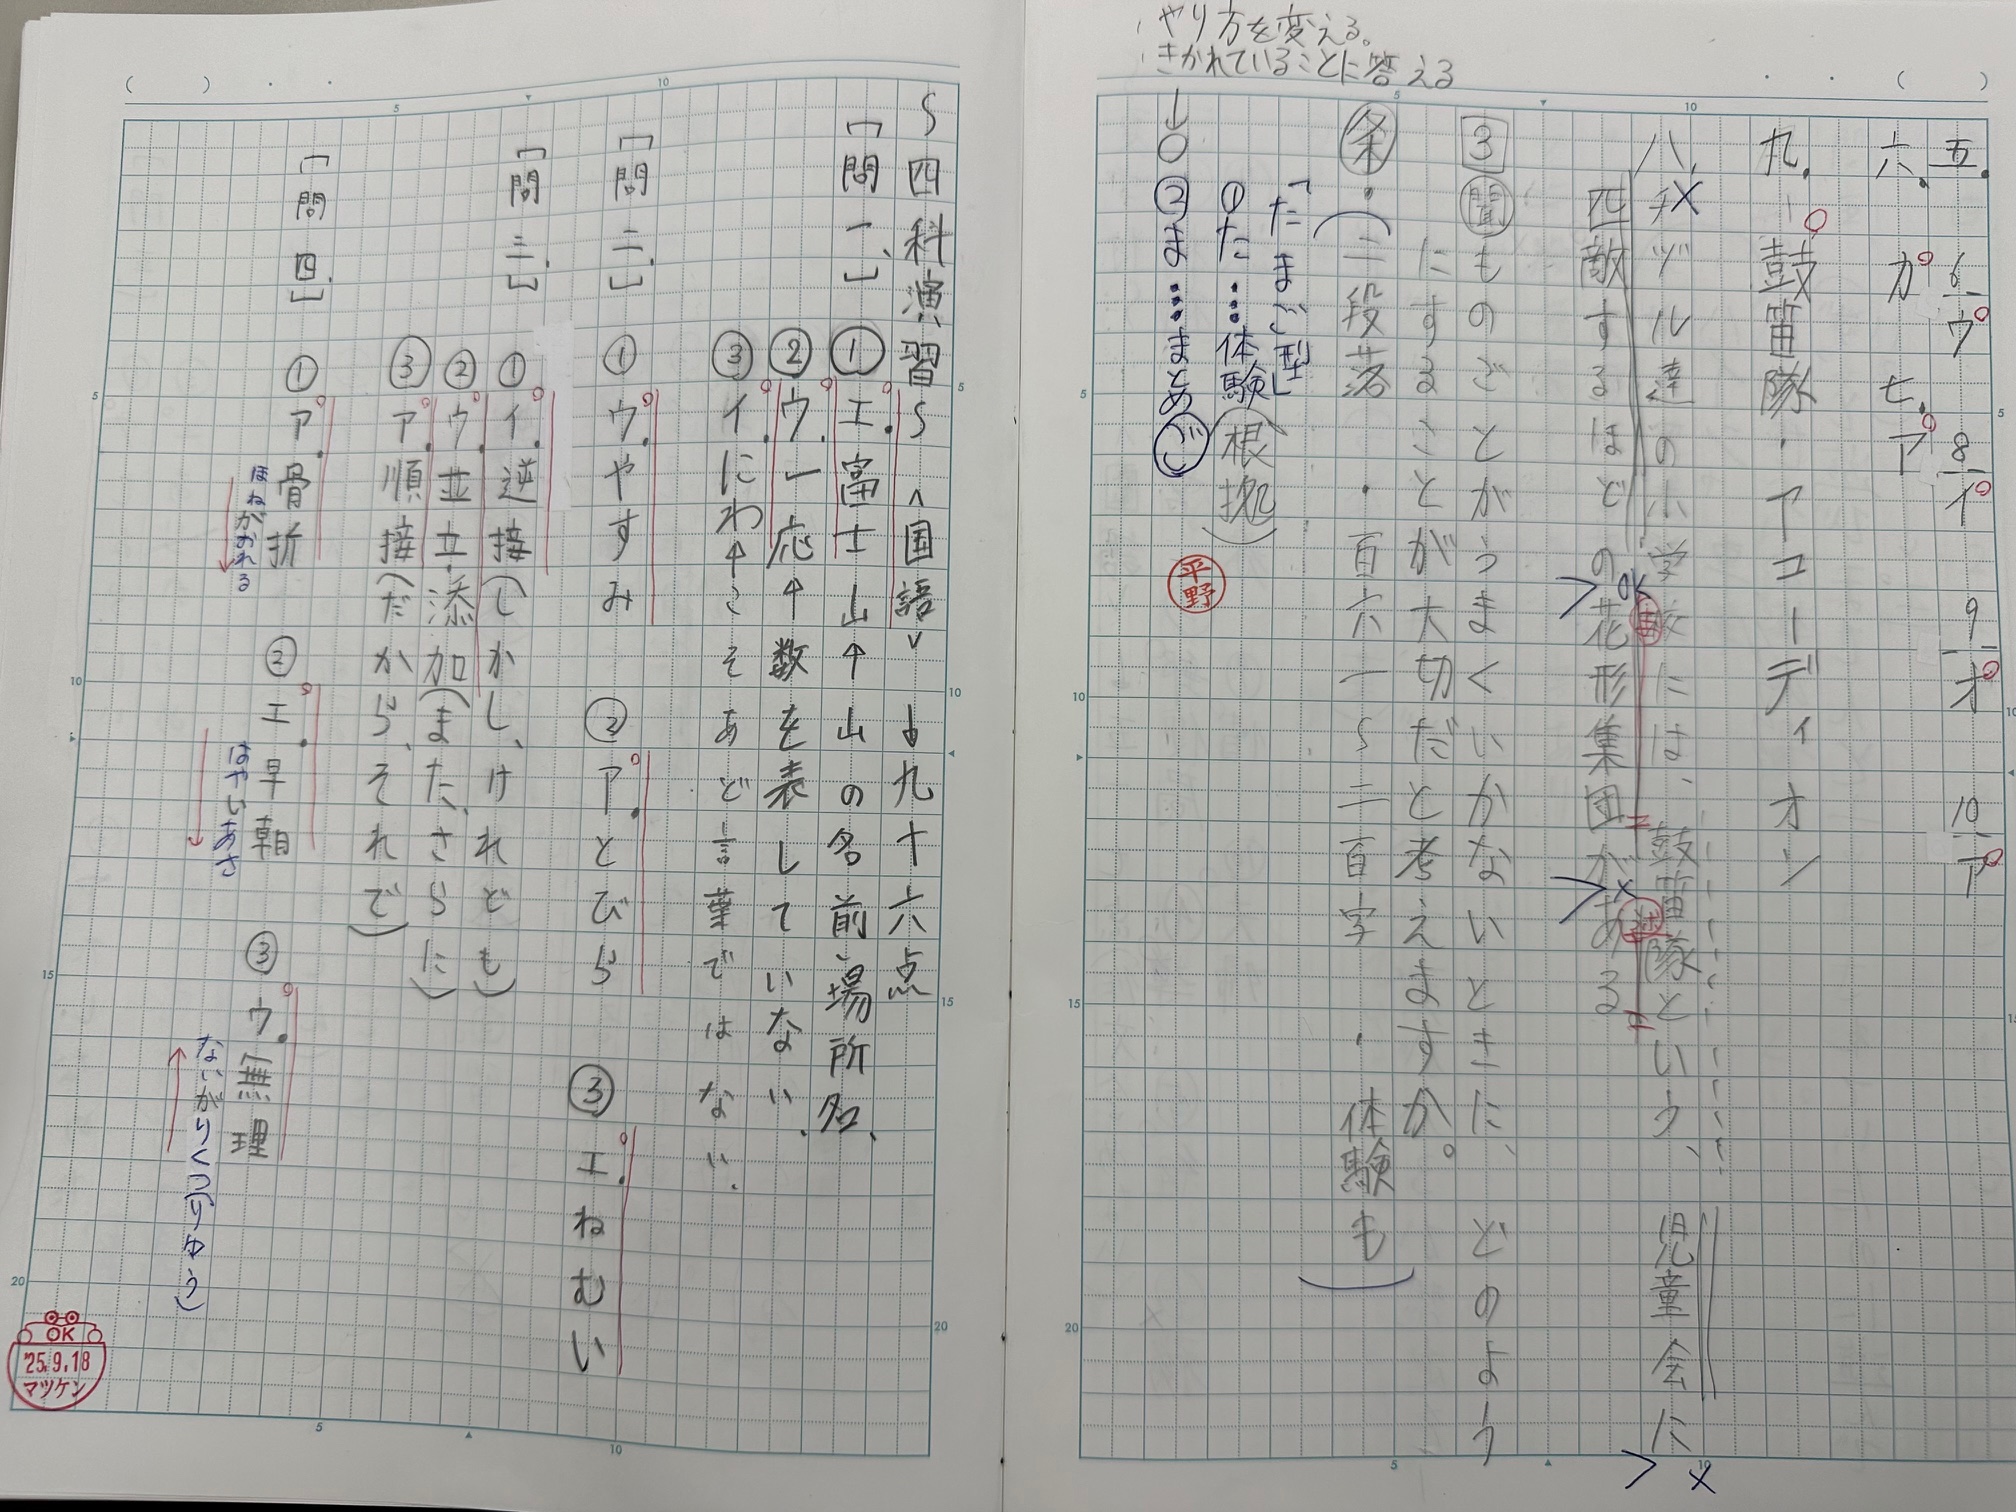 やり方を変える。
きかれていることに答える
五. 6 ウ 8 イ 9 オ 10 ア
六. カ 七. ア
九. 鼓笛隊・アコーディオン
八. 秋ヅル達の小学校には、鼓笛隊という、児童会に
四敵するほどの花形集団がある
OK
3 聞 ものごとがうまくいかないときに、どのよう
にすることが大切だと考えますか。
条・(二段落・百六一〜二百字・体験も)
「たまご型」
①た…体験(根拠)
↓○②ま…まとめ ご
平野
〜四科演習〜<国語>↓九十六点
[問一、] ①エ.富士山↑山の名前、場所名、
②ウ.一応↑数を表していない.
③イ.にわ↑こそあど言葉ではない.
[問二.] ①ウ.やすみ ②ア.とびら ③エ.ねむい
[問三.] ①イ.逆接(しかし、けれども)
②ウ.並立・添加(また、さらに)
③ア.順接(だから、それで)
[問四.] ①ア.骨折 ②エ.早朝 ③ウ.無理
ほねがおれる
はやいあさ
ないがりくつ(りゆう)
OK
'25.9.18
マツケン